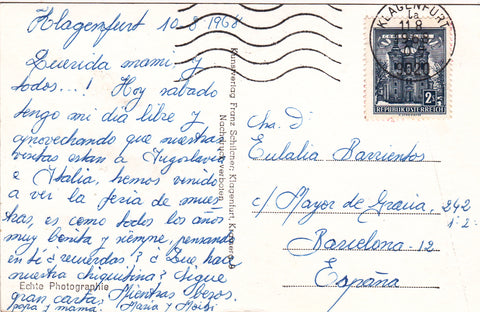 Klagenfurt 10-8-1968
Querida mami y
todos...! Hoy sabado
tengo mi dia libre y
aprovechando que nuestras
visitas estan a Yugoslavia
e Italia, hemos venido
a ver la feria de mues-
tras, es como todos los años
muy bonita y siempre pensando
en ti ¿recuerdas? ¿Que hace
nuestra chiquitina? Sigue
gran carta. Mientras besos.
papa y mama. Maria y
Echte Photographie
Kunstverlag Franz Schilcher, Klagenfurt
Nachdruck verboten
KLAGENFURT
11.8
1968
9020
REPUBLIK ÖSTERREICH
2
Eulalia Barrientos
c/ Mayor de Gracia, 242
1º 2ª
Barcelona-12
España